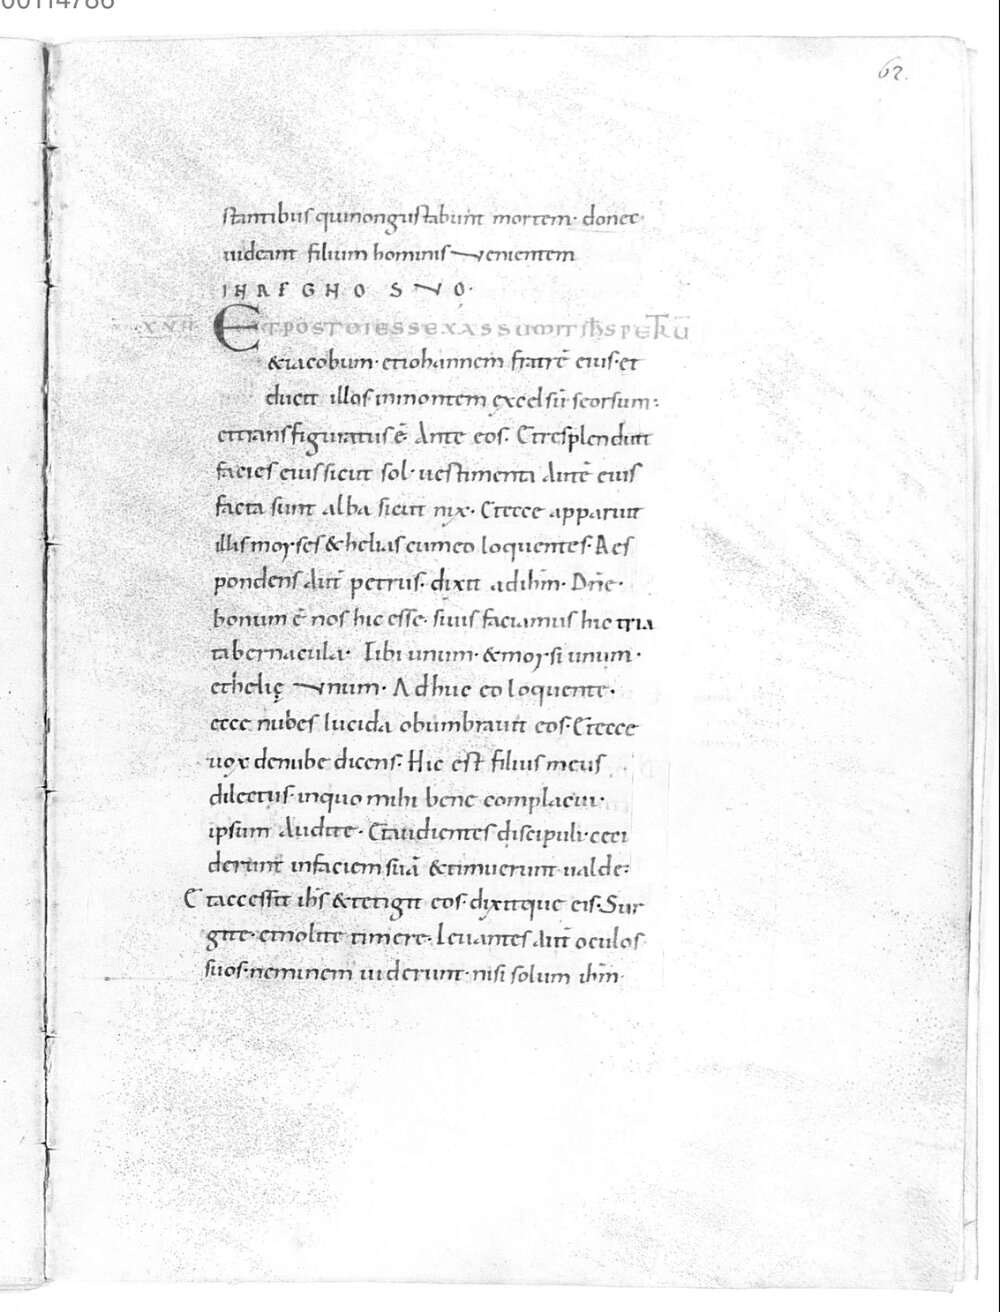 00114786
62.
stantibus qui non gustabunt mortem· donec·
uideant filium hominis venientem
IN REGNO SVO·
XVII ET POST DIES SEX ASSUMIT ih̅s PETRU̅
& iacobum· et iohannem fratre̅ eius· et
ducit illos in montem excelsu̅ seorsum:
et transfiguratus e̅ Ante eos. Et resplenduit
facies eius sicut sol· uestimenta Aute̅ eius
facta sunt alba sicut nix· Et ecce apparuit
illis moyses & helias cum eo loquentes. Res
pondens Aut̅ petrus· dixit ad ihm̅· Dn̅e·
bonum e̅ nos hic esse· si uis faciamus hic tria
tabernacula· Tibi unum· & moysi unum·
et helię vnum· Adhuc eo loquente·
ecce nubes lucida obumbrauit eos· Et ecce
uox de nube dicens. Hic est filius meus
dilectus· in quo mihi bene complacui·
ipsum Audite· Et audientes discipuli· ceci
derunt in faciem sua̅ & timuerunt ualde:
Et accessit ih̅s & tetigit eos· dixitque eis· Sur
gite· et nolite timere· Leuantes Aut̅ oculos·
suos· neminem uiderunt· nisi solum ihm̅·